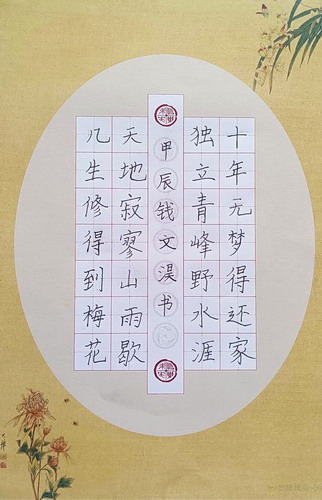 十年无梦得还家
独立青峰野水涯
天地寂寥山雨歇
几生修得到梅花
甲辰钱文淏书